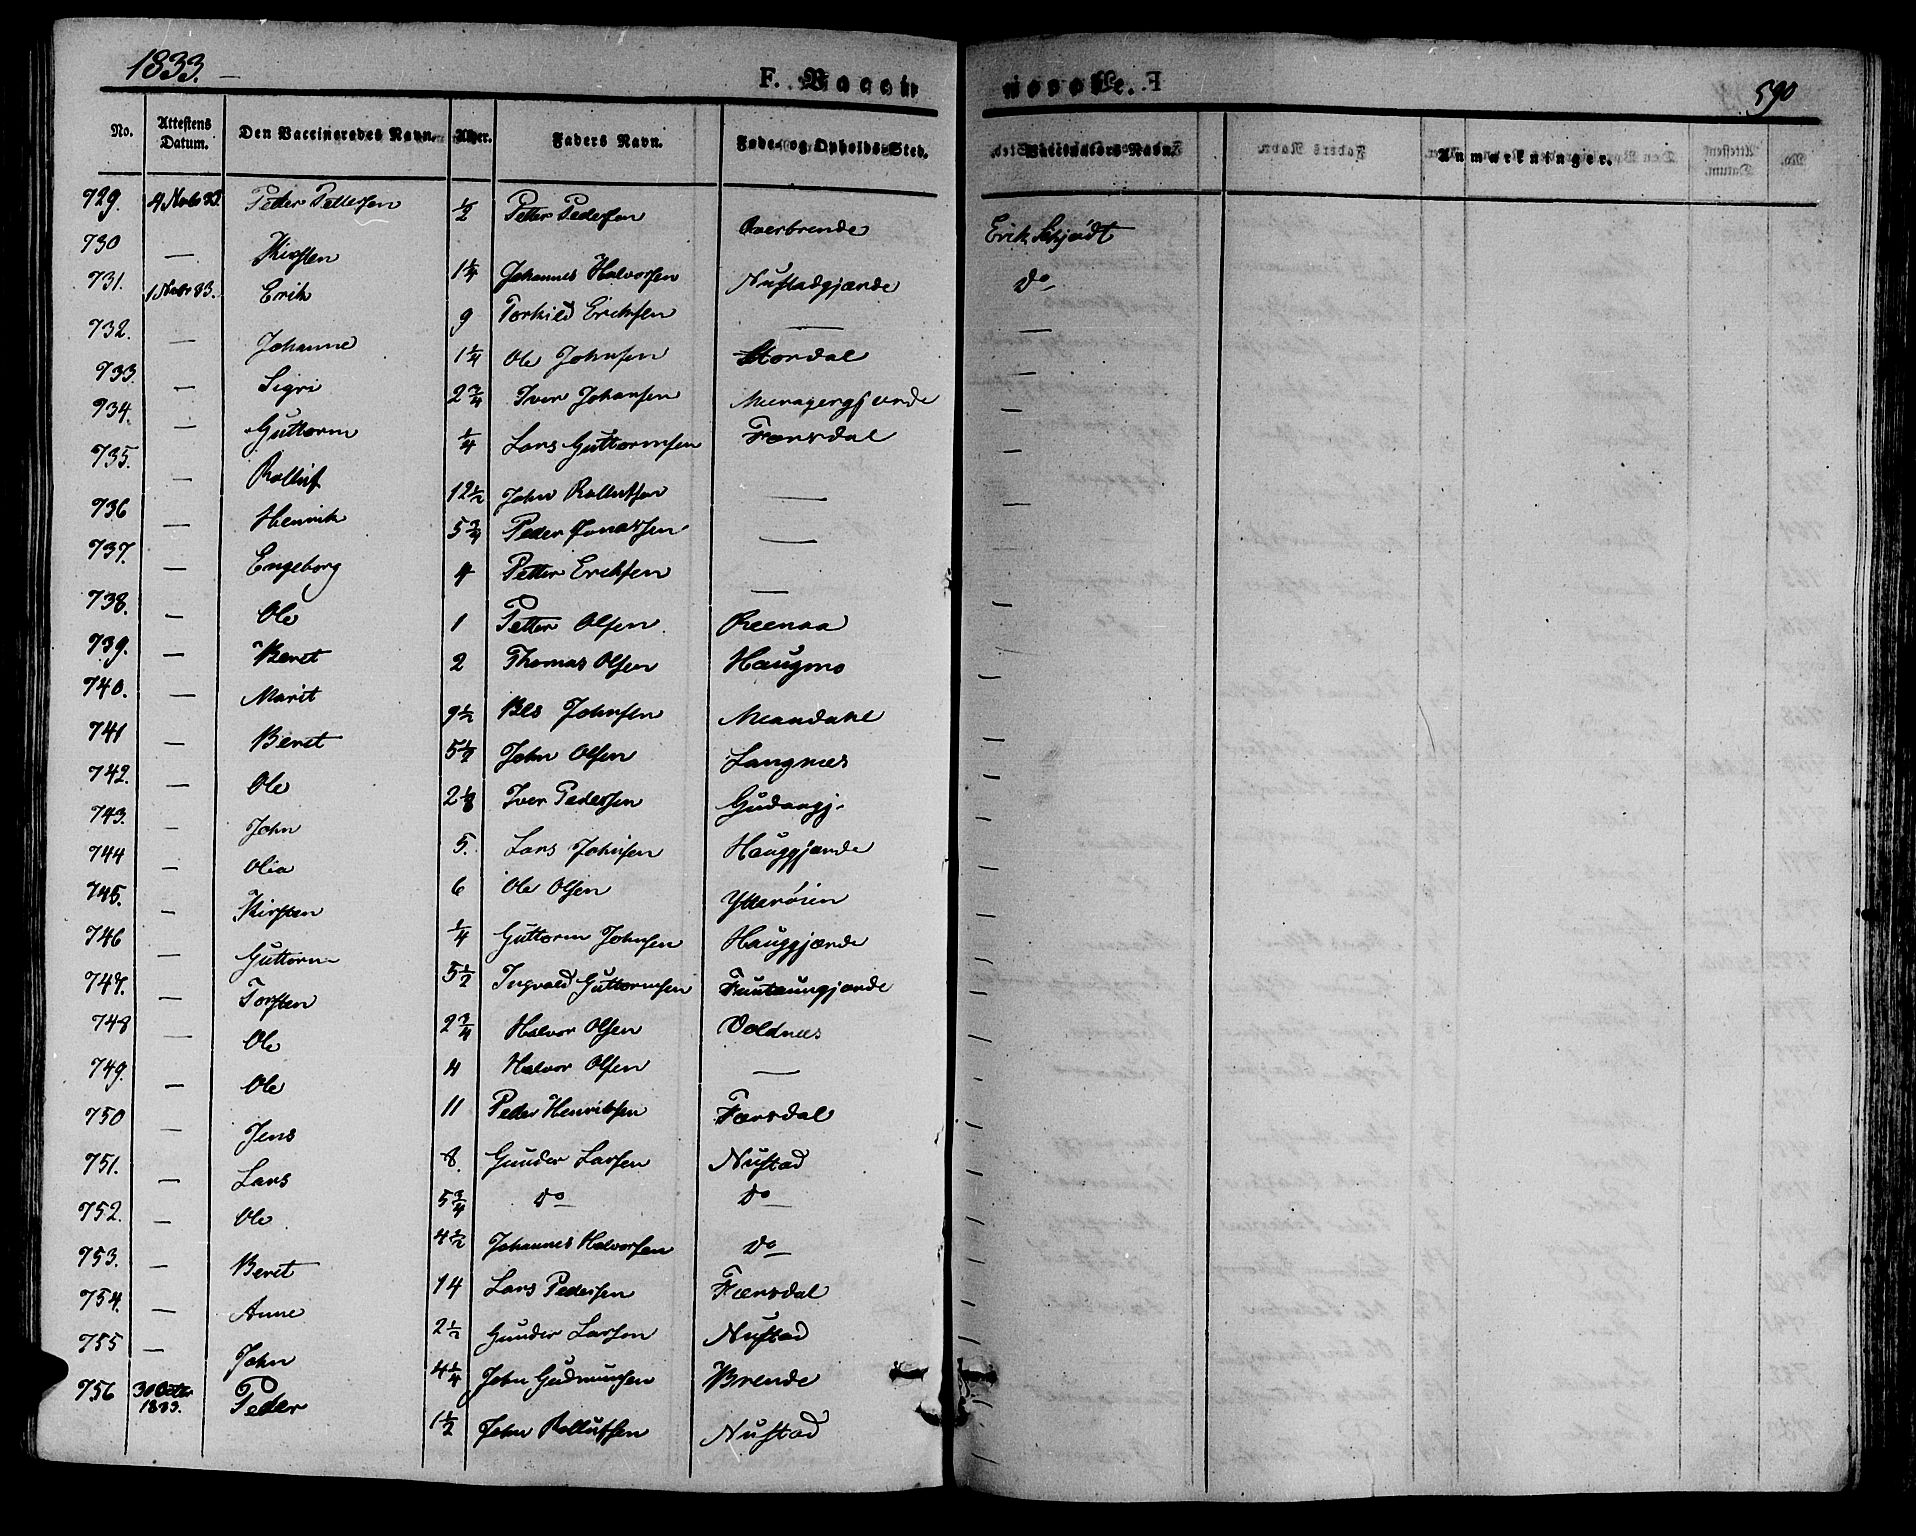 1833. F. Vaccin 590
No. Attestens Datum. Den Vaccineredes Navn. Alder. Faders Navn. Føde- og Opholds-Sted. Vaccinateurs Navn. Anmærkninger.
729. 4 Novb 33. Peder Pettersen ½ Petter Pedersen Overbrende Erik Schjødt
730 — Kirsten 1¼ Johannes Halvorsen Nustadgjærde do
731. 1 Novbr 33. Erik 9 Torkild Eriksen — —
732. — Johanne 1¼ Ole Johnsen Stordal —
733. — Sigri 2¾ Iver Johansen —
934. — Guttorm ¼ Lars Guttormsen Færsdal —
735. — Rolluf 12½ John Rollufsen — —
736 — Henrik 5¾ Peder Jonassen — —
737. — Engeborg 4 Petter Eriksen — —
738. — Ole 1 Petter Olsen Reenaa —
739. — Beret 2 Thomas Olsen Haugmo —
740. — Marit 9½ Johnsen Meandahl —
741 — Beret 5½ John Olsen Langnæs —
742. — Ole 2⅛ Iver Pedersen Gudaugj. —
743. — John 5. Lars Johnsen Hauggjærde —
744 — Olia 6 Ole Olsen Ytterøien —
745. — Kirsten ¼ Guttorm Johnsen Hauggjærde —
746 — Guttorm 5½ Ingvald Guttormsen Fuutaungjærde —
747. — Torsten 2¾ Halvor Olsen Voldnæs —
748 — Ole 4 Halvor Olsen — —
749. — Ole 11 Peder Henriksen Færsdal —
750 — Jens 8. Gunder Larsen Nustad —
751. — Lars 5¾ do do —
752. — Ole 4½ Johannes Halvorsen do —
753. — Beret 14 Lars Pedersen Færsdal —
754. — Anne 2½ Gunder Larsen Nustad —
755 — John 4¼ John Gudmunsen Brende —
756 30 Octbr 1833. Peder 1½ John Rollufsen Nustad —